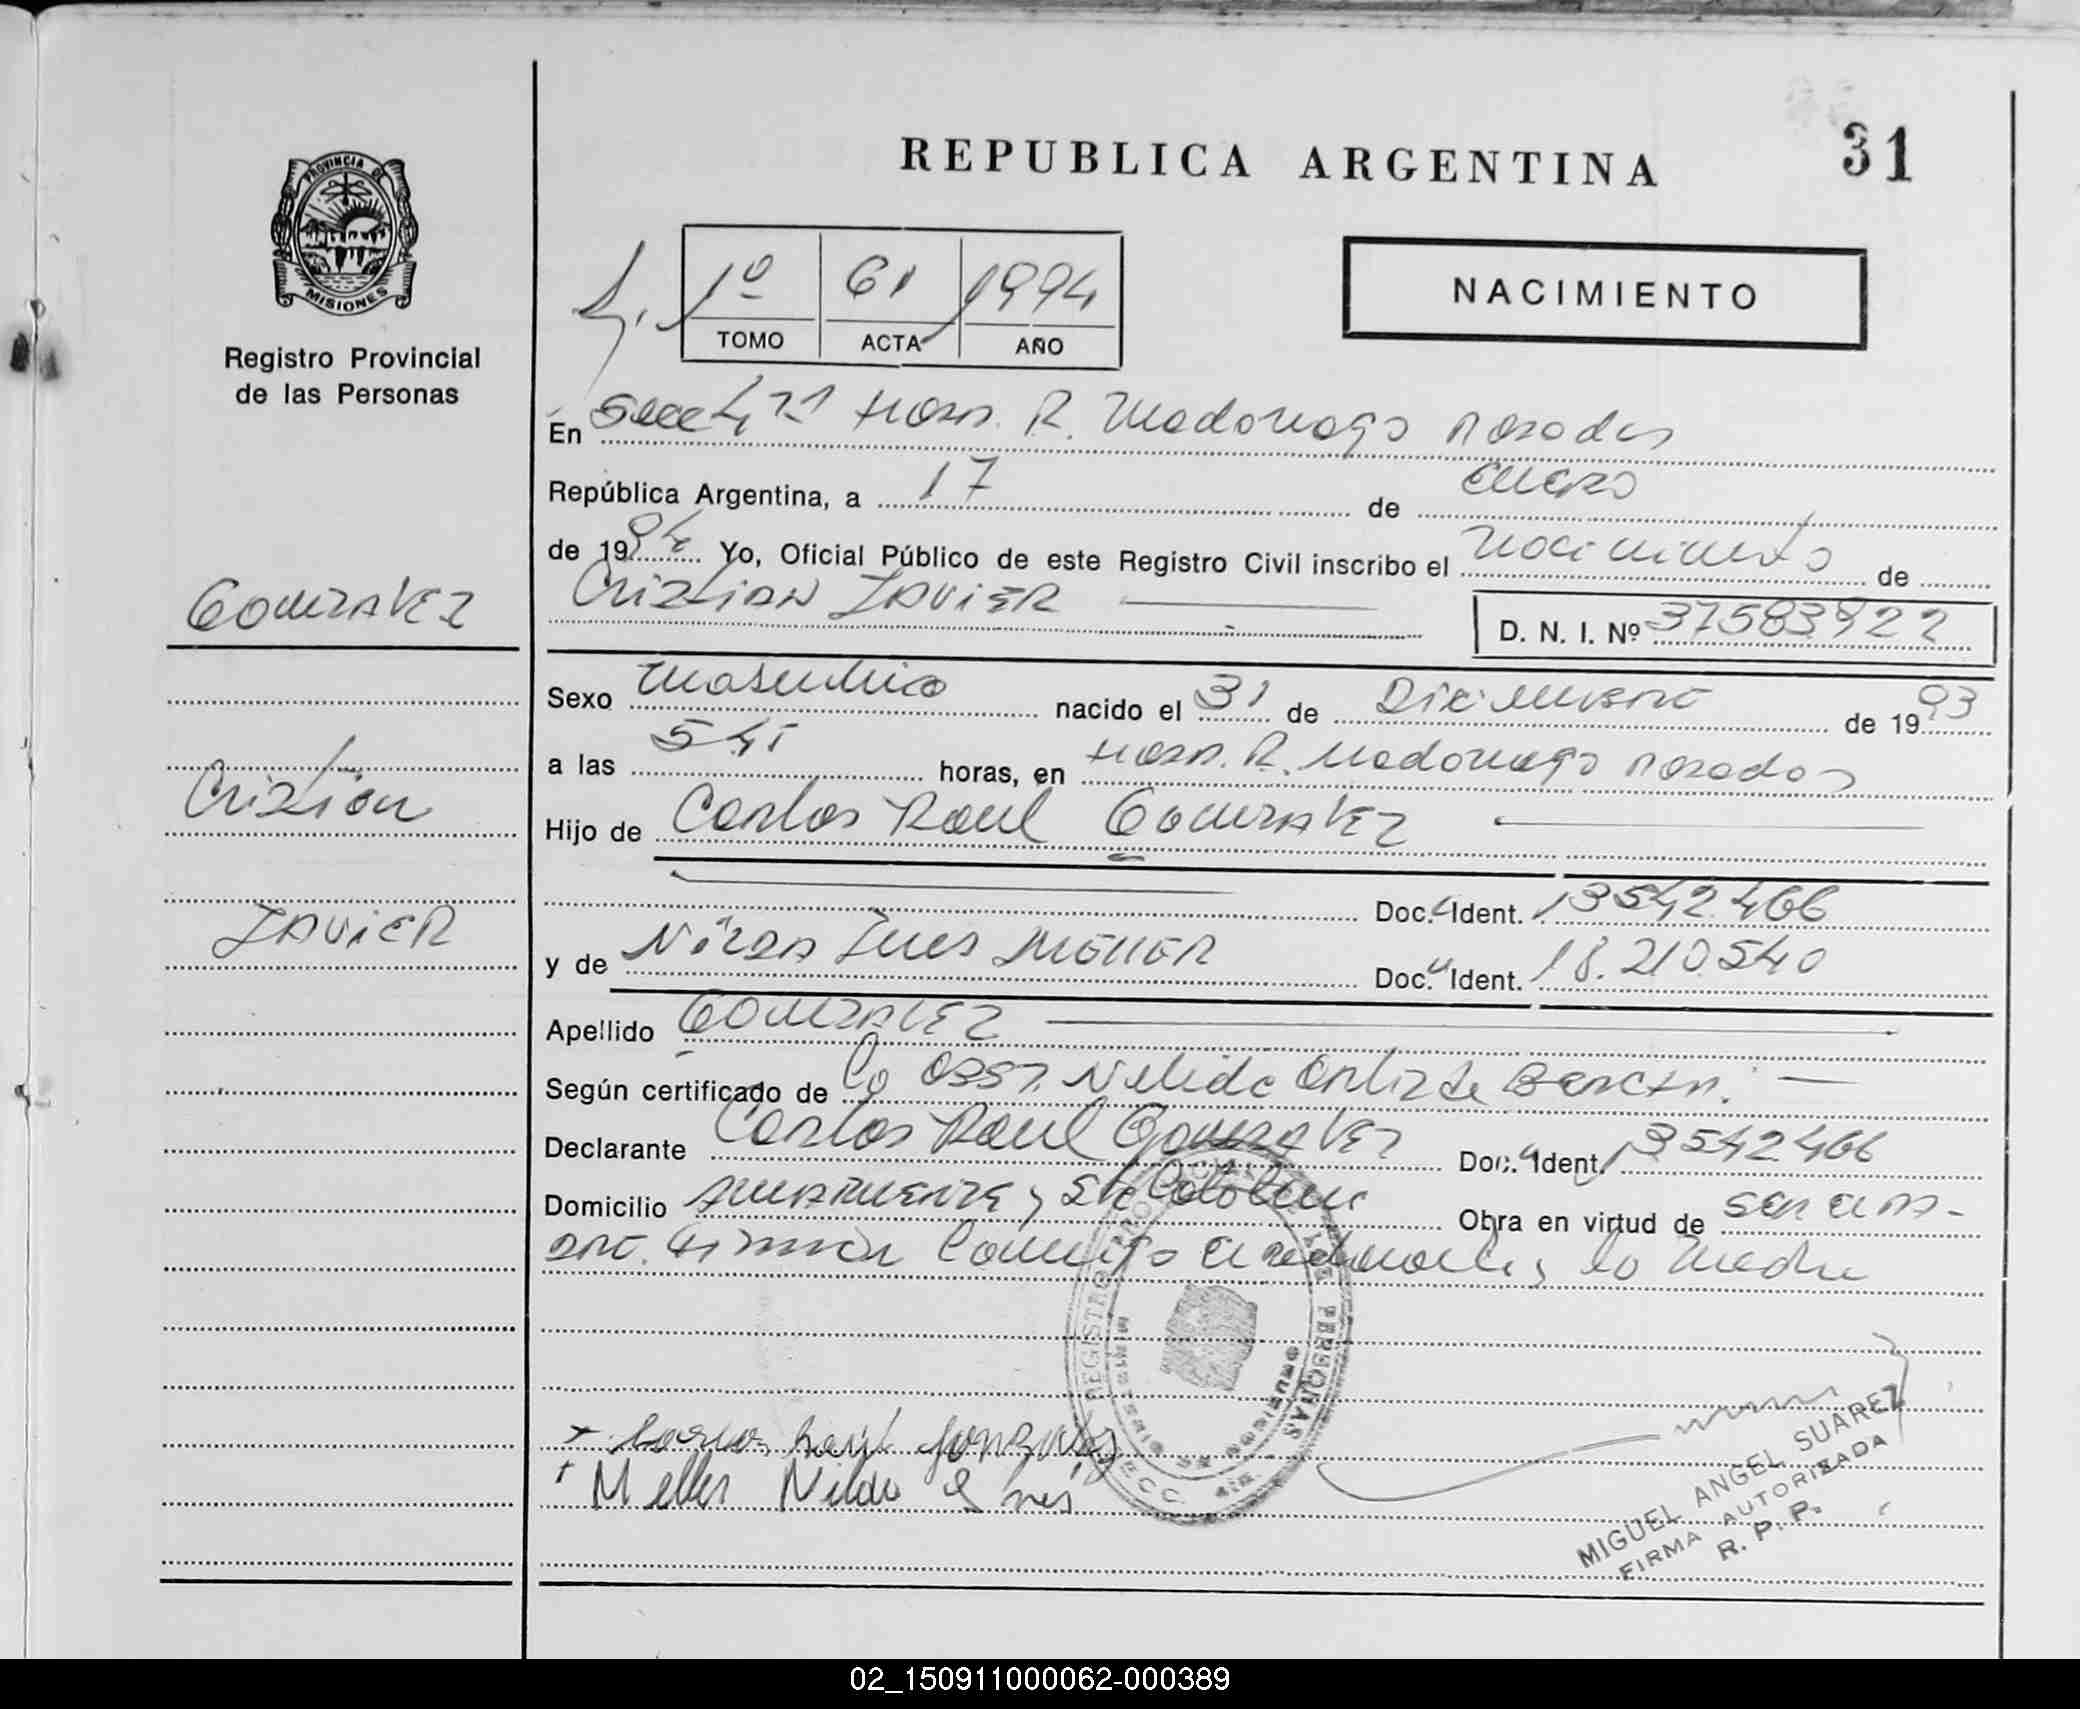 REPUBLICA ARGENTINA
31
PROVINCIA DE
MISIONES
Registro Provincial
de las Personas
1º 61 1994
TOMO ACTA AÑO
NACIMIENTO
En Secc 4, Hosp. R. Madariaga Posadas
República Argentina, a 17 de enero
de 1994 Yo, Oficial Público de este Registro Civil inscribo el Nacimiento de
Cristian Javier
D. N. I. Nº 37583922
GONZALEZ
Cristian
Javier
Sexo masculino nacido el 31 de Diciembre de 1993
a las 5 45 horas, en Hosp. R. Madariaga Posadas
Hijo de Carlos Raul GONZALEZ
Doc. Ident. 13542466
y de Ines MELLER Doc. Ident. 18.210.540
Apellido GONZALEZ
Según certificado de la Obst. Nelida Ortiz de
Declarante Carlos Raul GONZALEZ Doc. Ident. 13542466
Domicilio y Obra en virtud de ser el pa-
dre. Firman Conmigo el y la madre
Carlos Raul Gonzalez
Meller Ines
REGISTRO PROVINCIAL DE LAS PERSONAS
MIGUEL ANGEL SUAREZ
FIRMA AUTORIZADA
R. P. P.
02_150911000062-000389